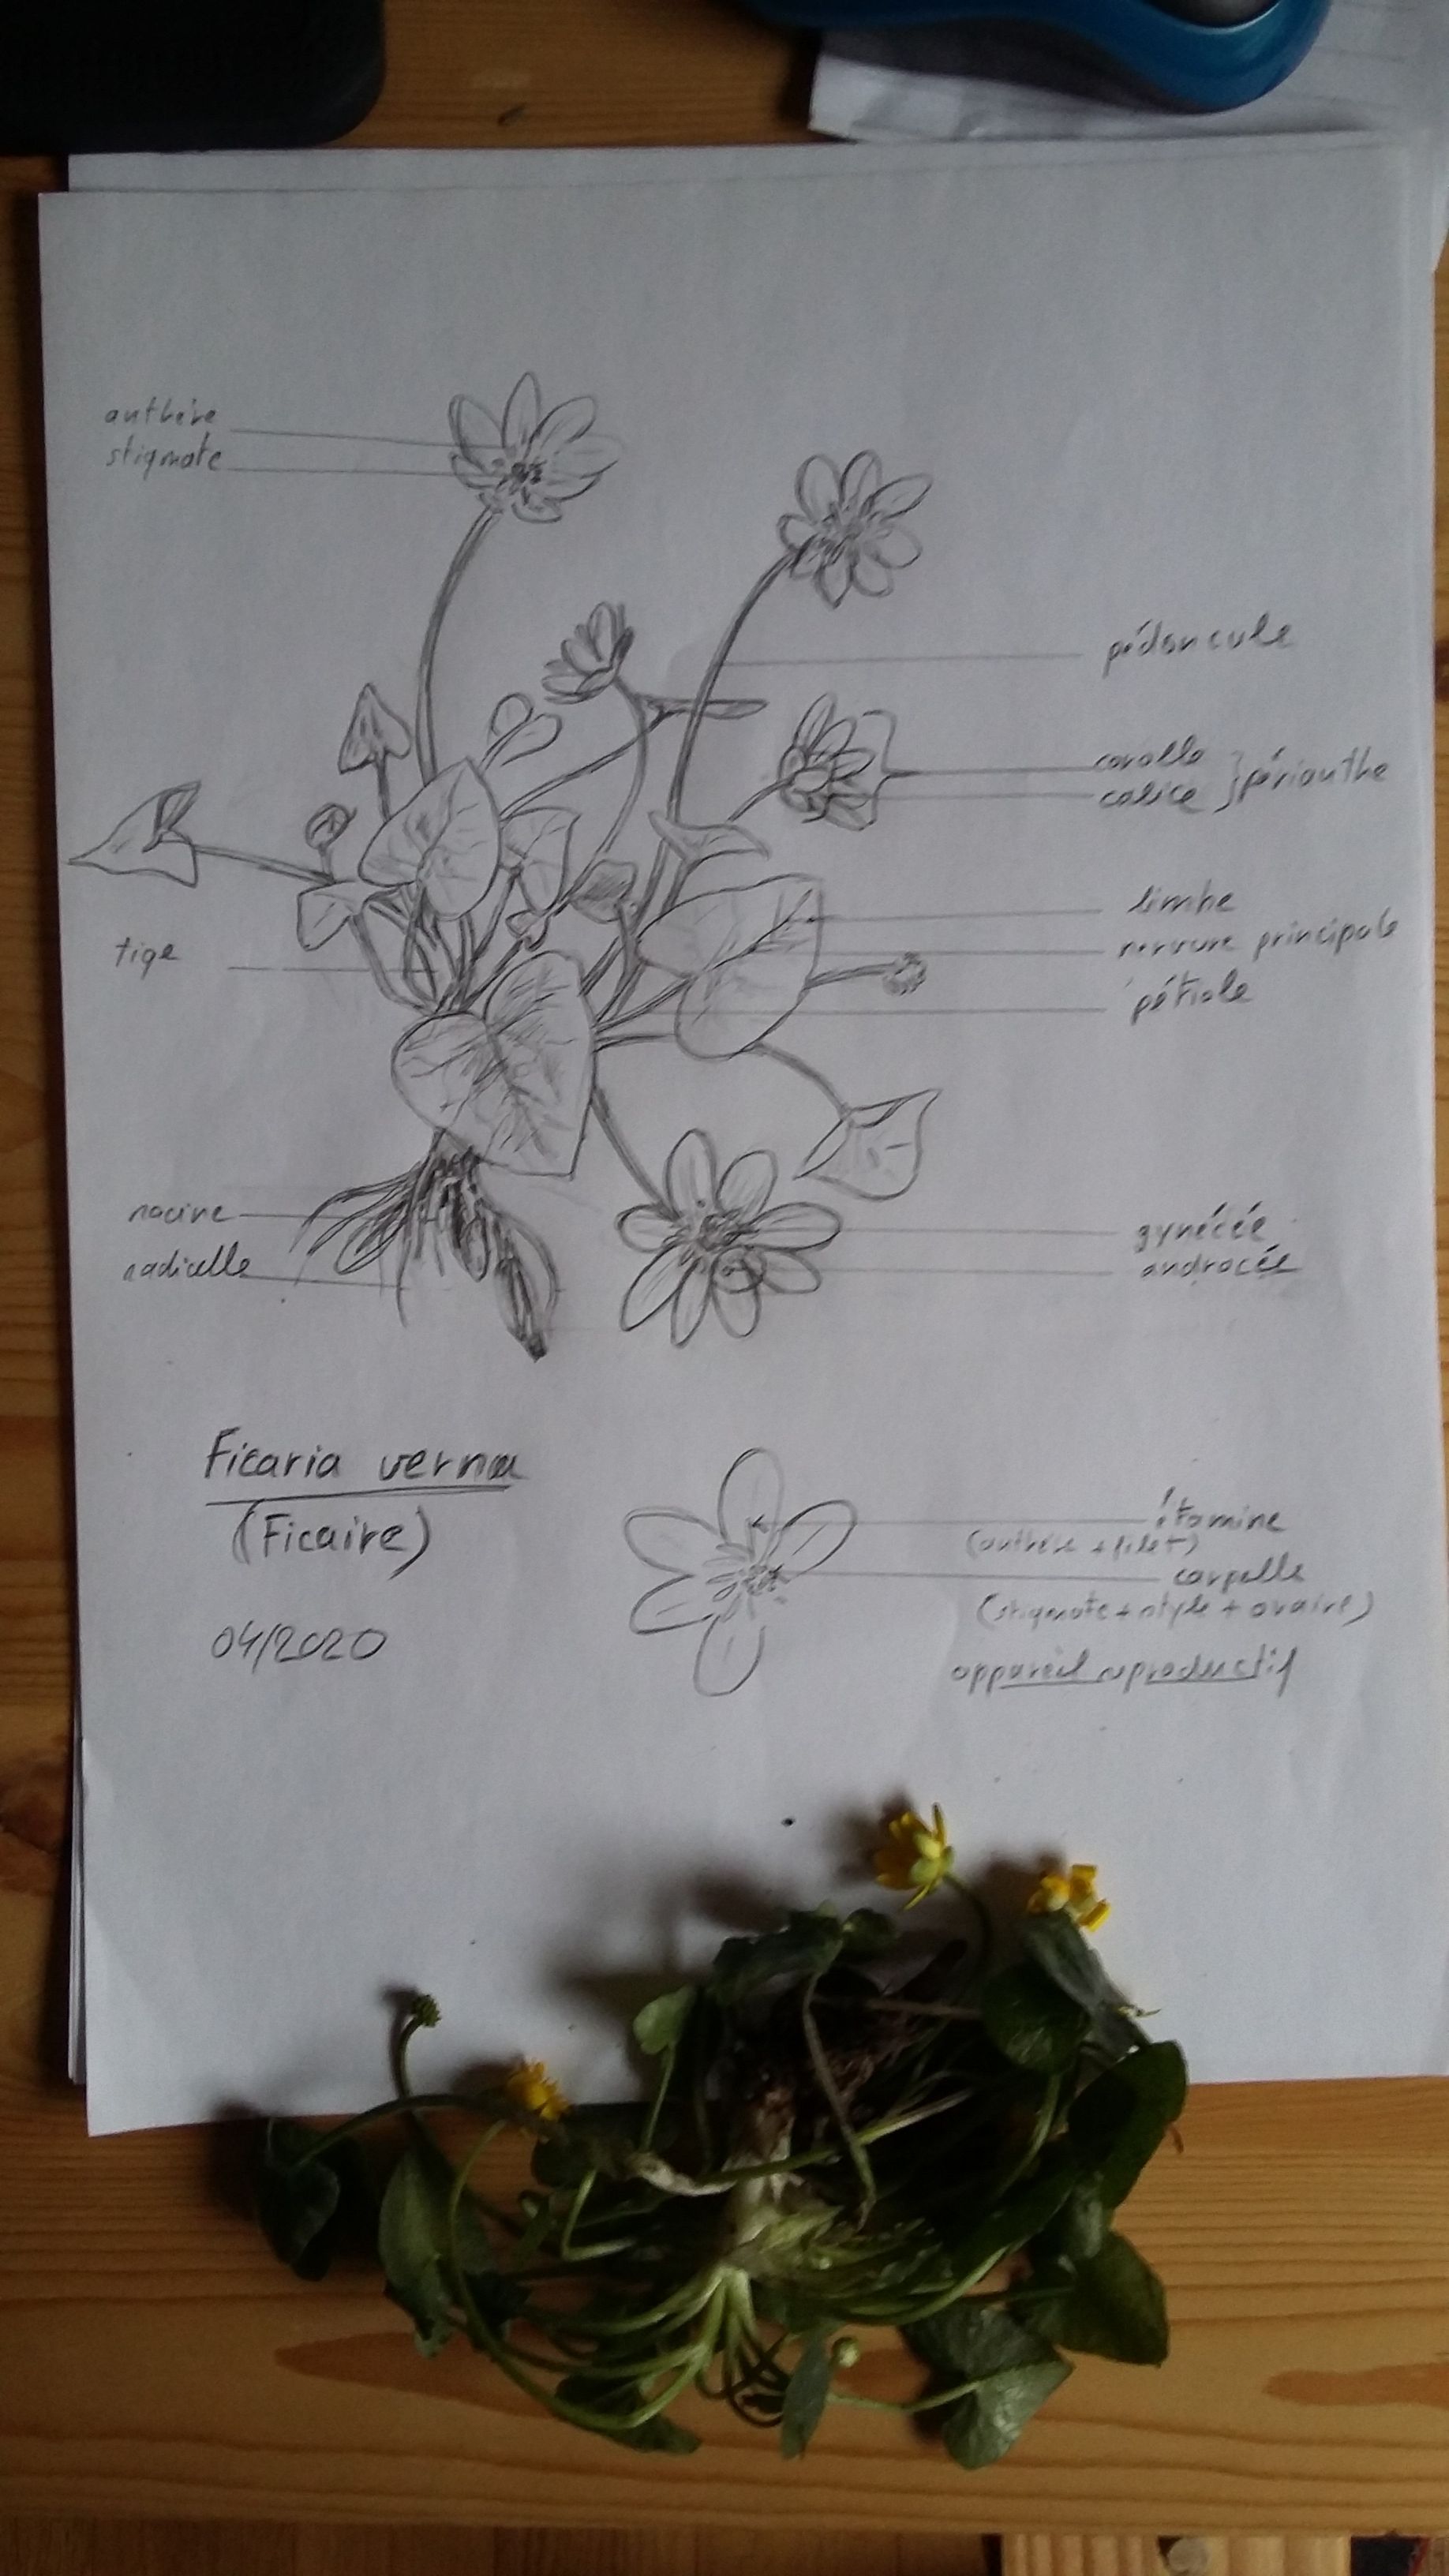 anthère
stigmate
pédoncule
corolle
calice } périanthe
limbe
nervure principale
pétiole
tige
racine
radicelle
gynécée
androcée
Ficaria verna
(Ficaire)
04/2020
étamine
(anthère + filet)
carpelle
(stigmate + style + ovaire)
appareil reproductif